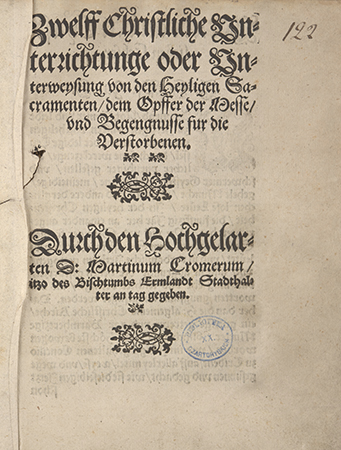 122
Zwelff Christliche Un-
terrichtunge oder Un-
terweysung von den Heyligen Sa-
cramenten/dem Opffer der Messe/
vnd Begengnusse fur die
Verstorbenen.
Durch den Hochgelar-
ten D: Martinum Cromerum/
itzo des Bischtumbs Ermlandt Stadthal-
ter an tag gegeben.